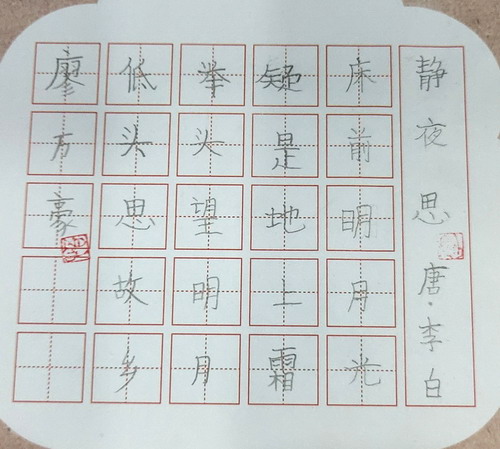 静夜思 唐·李白
床前明月光
疑是地上霜
举头望明月
低头思故乡
廖万豪